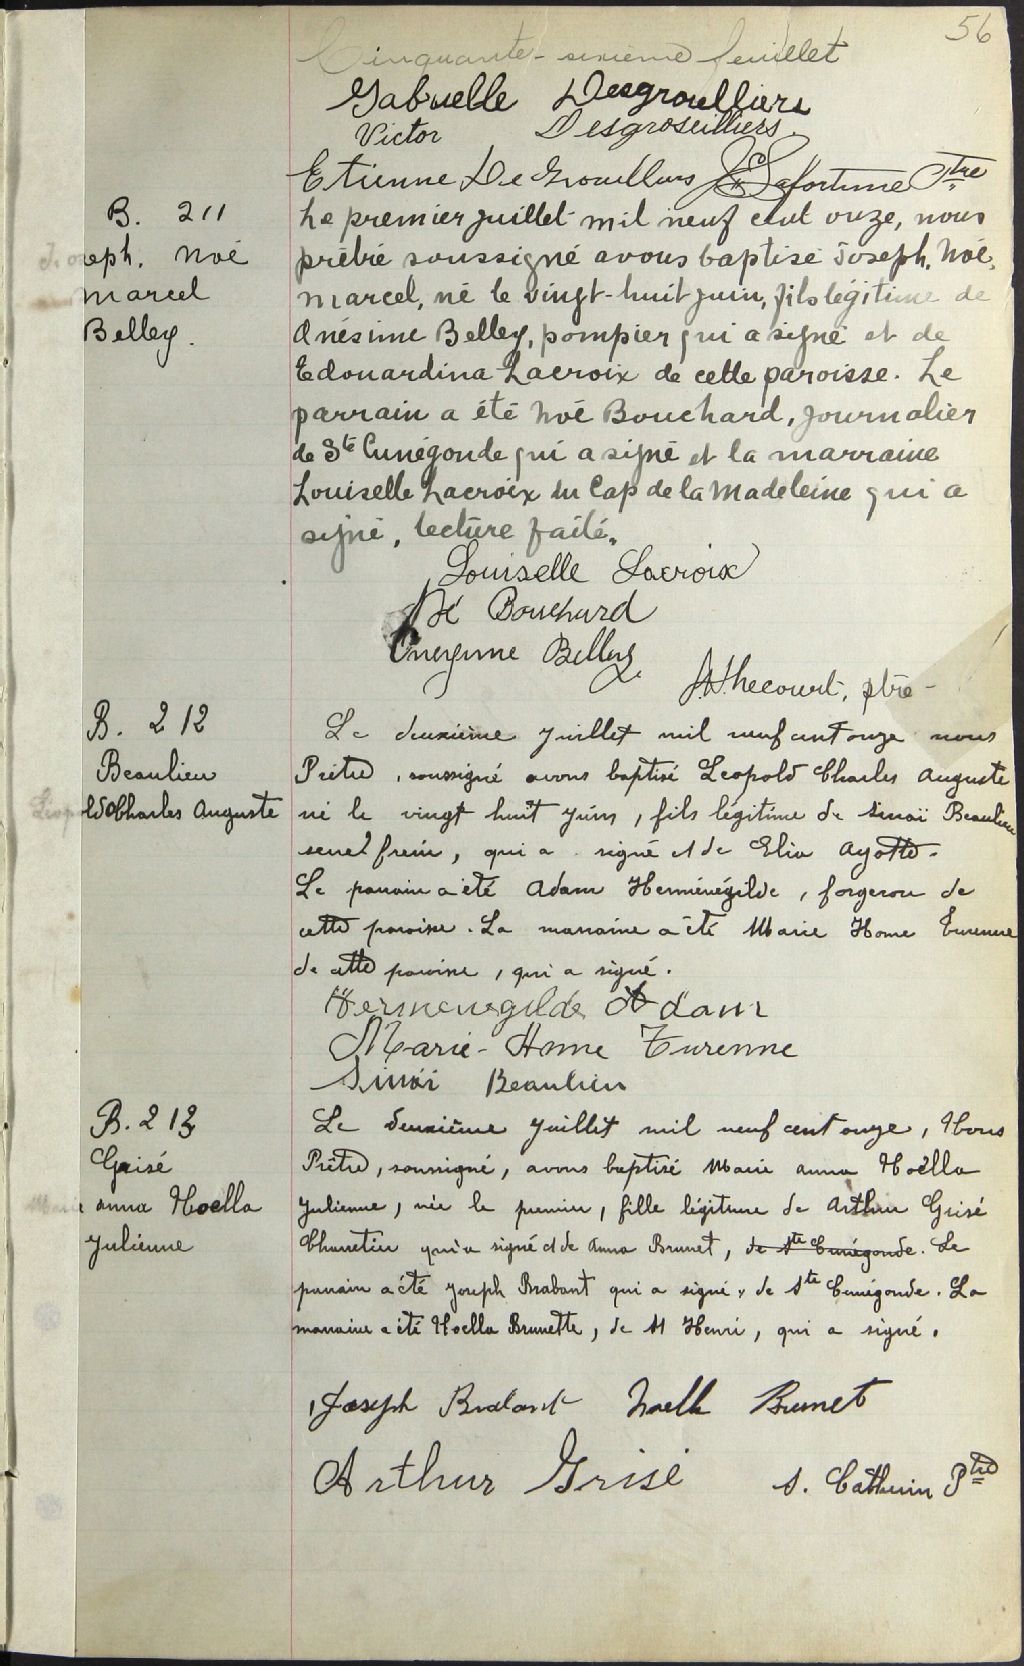 56
Cinquante-sixième feuillet
Gabrielle Desgroseilliers
Victor Desgroseilliers
Etienne DeGroseillers Lafortune Ptre
B. 211
Joseph. Noé
Marcel
Belley.
Le premier juillet mil neuf cent onze, nous
prêtre soussigné avons baptisé Joseph, Noé,
Marcel, né le vingt-huit juin, fils légitime de
Onésime Belley, pompier qui a signé et de
Edouardina Lacroix de cette paroisse. Le
parrain a été Noé Bouchard, journalier
de Ste Cunégonde qui a signé et la marraine
Louiselle Lacroix du Cap de la Madeleine qui a
signé, lecture faite.
Louiselle Lacroix
Noé Bouchard
Onesime Belley
Hecourt, ptre-
B. 212
Beaulieu
Léopold Charles Auguste
Le deuxième juillet mil neuf cent onze nous
Prêtre, soussigné avons baptisé Leopold Charles Auguste
né le vingt huit juin, fils légitime de Sinaï Beaulieu
serre frein, qui a signé et de Elia Ayotte.
Le parrain a été Adam Herménégilde, forgeron de
cette paroisse. La marraine a été Marie Home Turenne
de cette paroisse, qui a signé.
Hermenegilde Adam
Marie-Home Turenne
Sinaï Beaulieu
B. 213
Grisé
Marie anna Noella
Julienne
Le deuxième juillet mil neuf cent onze, Nous
Prêtre, soussigné, avons baptisé Marie anna Noëlla
Julienne, née le premier, fille légitime de Arthur Grisé
Charretier qui a signé et de Anna Brunet, de Ste Cunégonde. Le
parrain a été Joseph Brabant qui a signé, de Ste Cunégonde. La
marraine a été Noella Brunette, de St Henri, qui a signé.
Joseph Brabant Noella Brunet
Arthur Grisé S. Cathuin Ptre